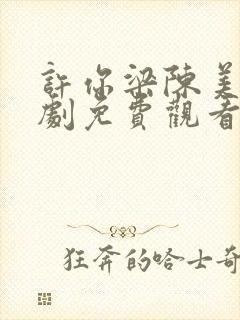 許你梁陳美
劇免費觀看
狂奔的哈士奇